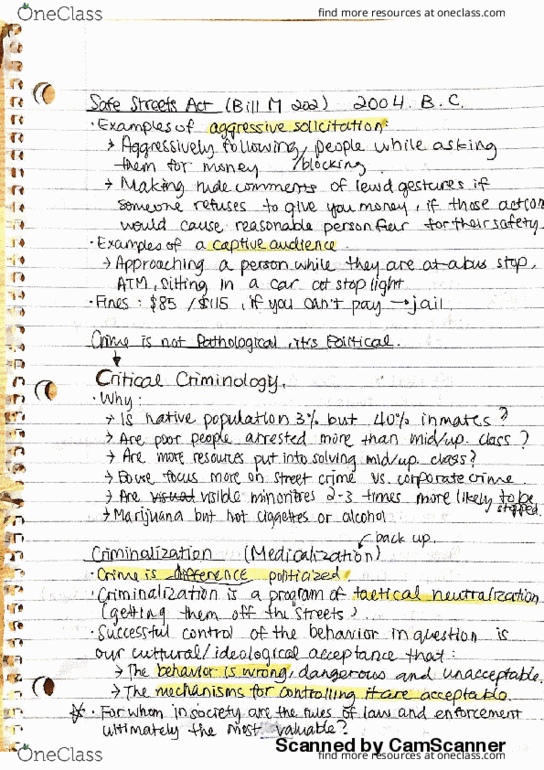 OneClass
find more resources at oneclass.com
Safe Streets Act (Bill M 202) 2004. B.C.
· Examples of aggressive solicitation:
→ Aggressively following, people while asking
them for money /blocking
→ Making rude comments of lewd gestures if
someone refuses to give you money, if those action
would cause reasonable person fear for their safety.
· Examples of a captive audience.
→ Approaching a person while they are at a bus stop,
ATM, sitting in a car at stop light
· Fines: $85 / $115, if you can't pay → jail
Crime is not Pathological, it's Political.
Critical Criminology.
· Why:
→ Is native population 3% but 40% inmates?
→ Are poor people arrested more than mid/up. class?
→ Are more resources put into solving mid/up. class?
→ focus more on street crime vs. corporate crime.
→ Are visual visible minorities 2-3 times more likely to be stopped.
→ Marijuana but not cigarettes or alcohol
back up.
Criminalization (Medicalization)
· Crime is difference politicized.
· Criminalization is a program of tactical neutralization
(getting them off the streets).
· Successful control of the behavior in question is
our cultural/ideological acceptance that:
→ The behavior is wrong, dangerous and unacceptable.
→ The mechanisms for controlling it are acceptable.
· For whom in society are the rules of law and enforcement
ultimately the most valuable?
Scanned by CamScanner
OneClass
find more resources at oneclass.com